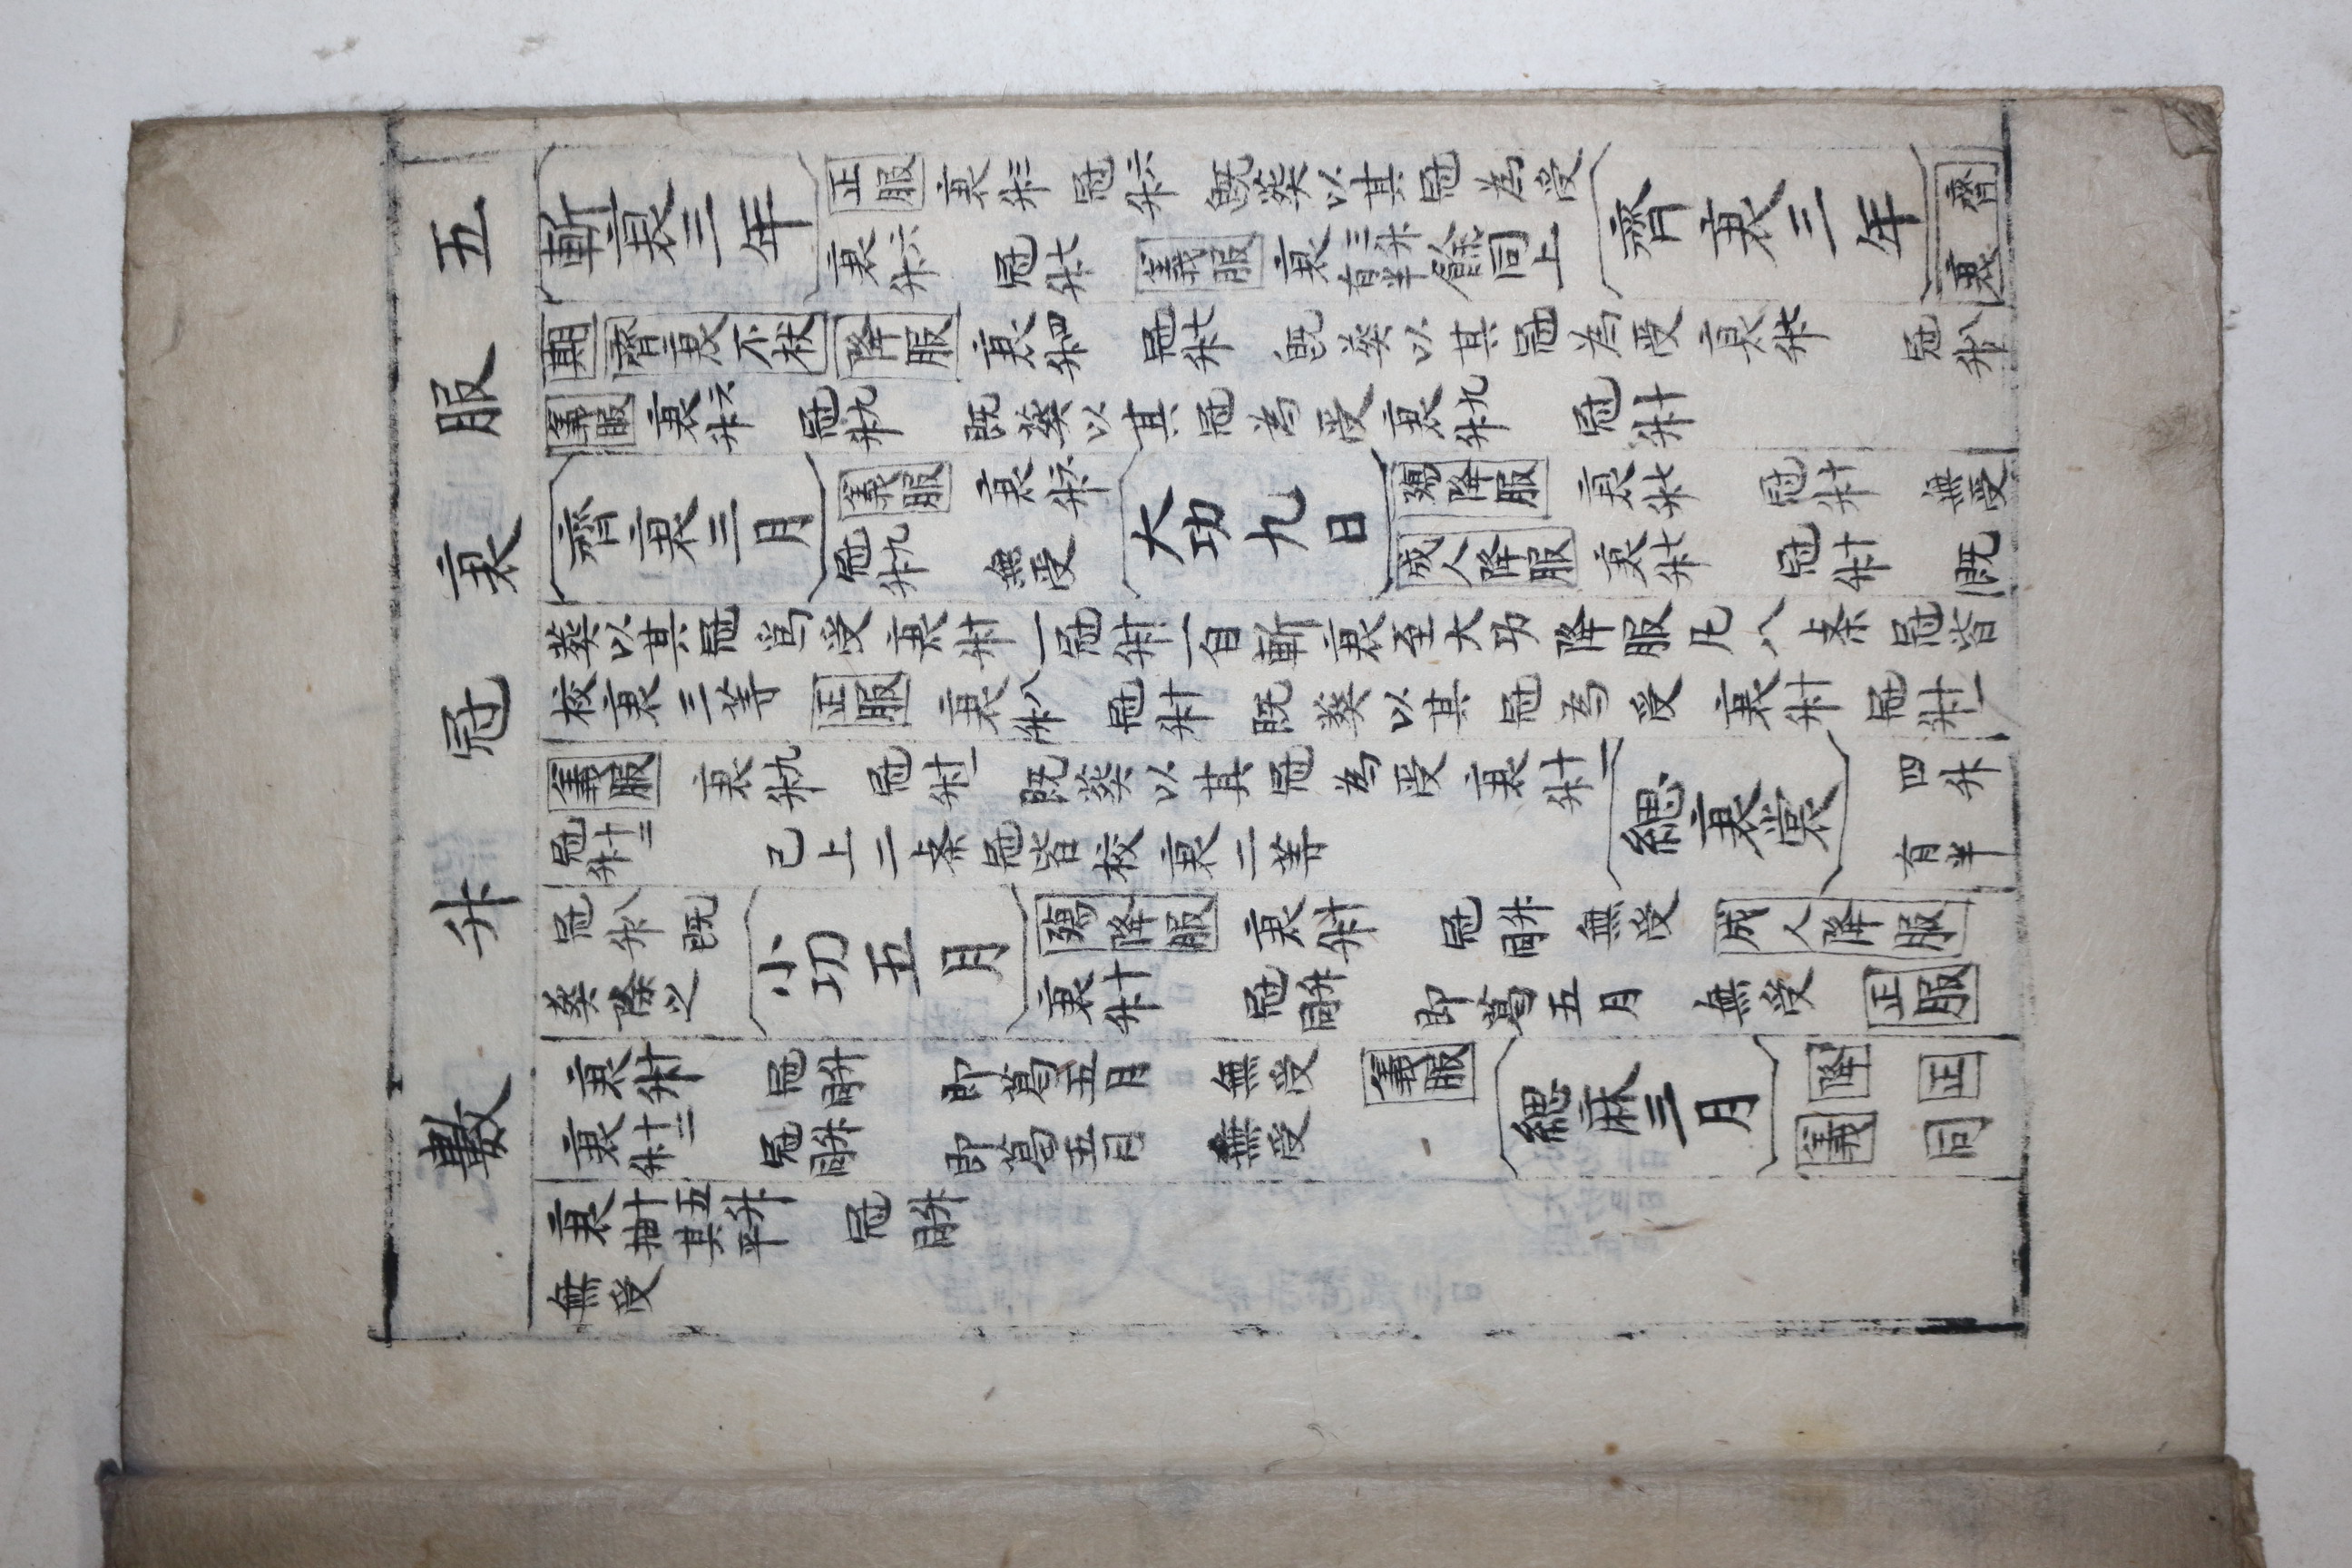 五服衰冠升數
斬衰三年
正服衰三升冠六升既葬以其冠為受
衰六升冠七升義服衰三升有半餘同上
齊衰三年
齊衰
期齊衰不杖降服衰四升冠七升既葬以其冠為受衰七升冠八升
義服衰六升冠九升既葬以其冠為受衰九升冠十升
齊衰三月
義服衰六升
冠九升無受
大功九日
殤降服衰七升冠十升無受
成人降服衰七升冠十升既
葬以其冠爲受衰十升一冠十升一自斬衰至大功降服凡八条冠皆
校衰三等正服衰八升冠十升既葬以其冠為受衰十升冠十一升
義服衰九升冠十一升既葬以其冠為受衰十一升
冠十二升已上二条冠皆校衰二等
緦衰裳
四升
有半
冠八升既
葬除之
小功五月
殤降服衰十升冠升同無受成人降服
衰十升冠升同即葛五月無受正服
衰十升冠升同即葛五月無受義服
衰十二升冠升同即葛五月無受
緦麻三月
降正
義同
衰十五升抽其平冠升同
無受